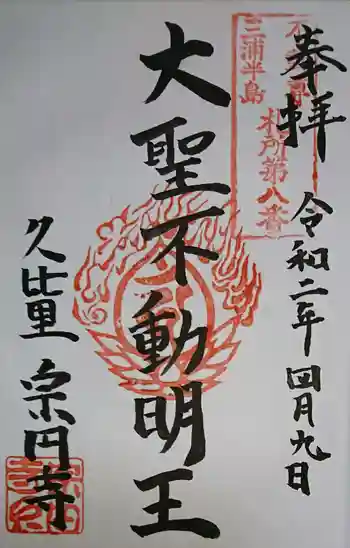 奉拝
令和二年四月九日
不動尊
三浦半島
札所第八番
大聖不動明王
久比里 宗円寺